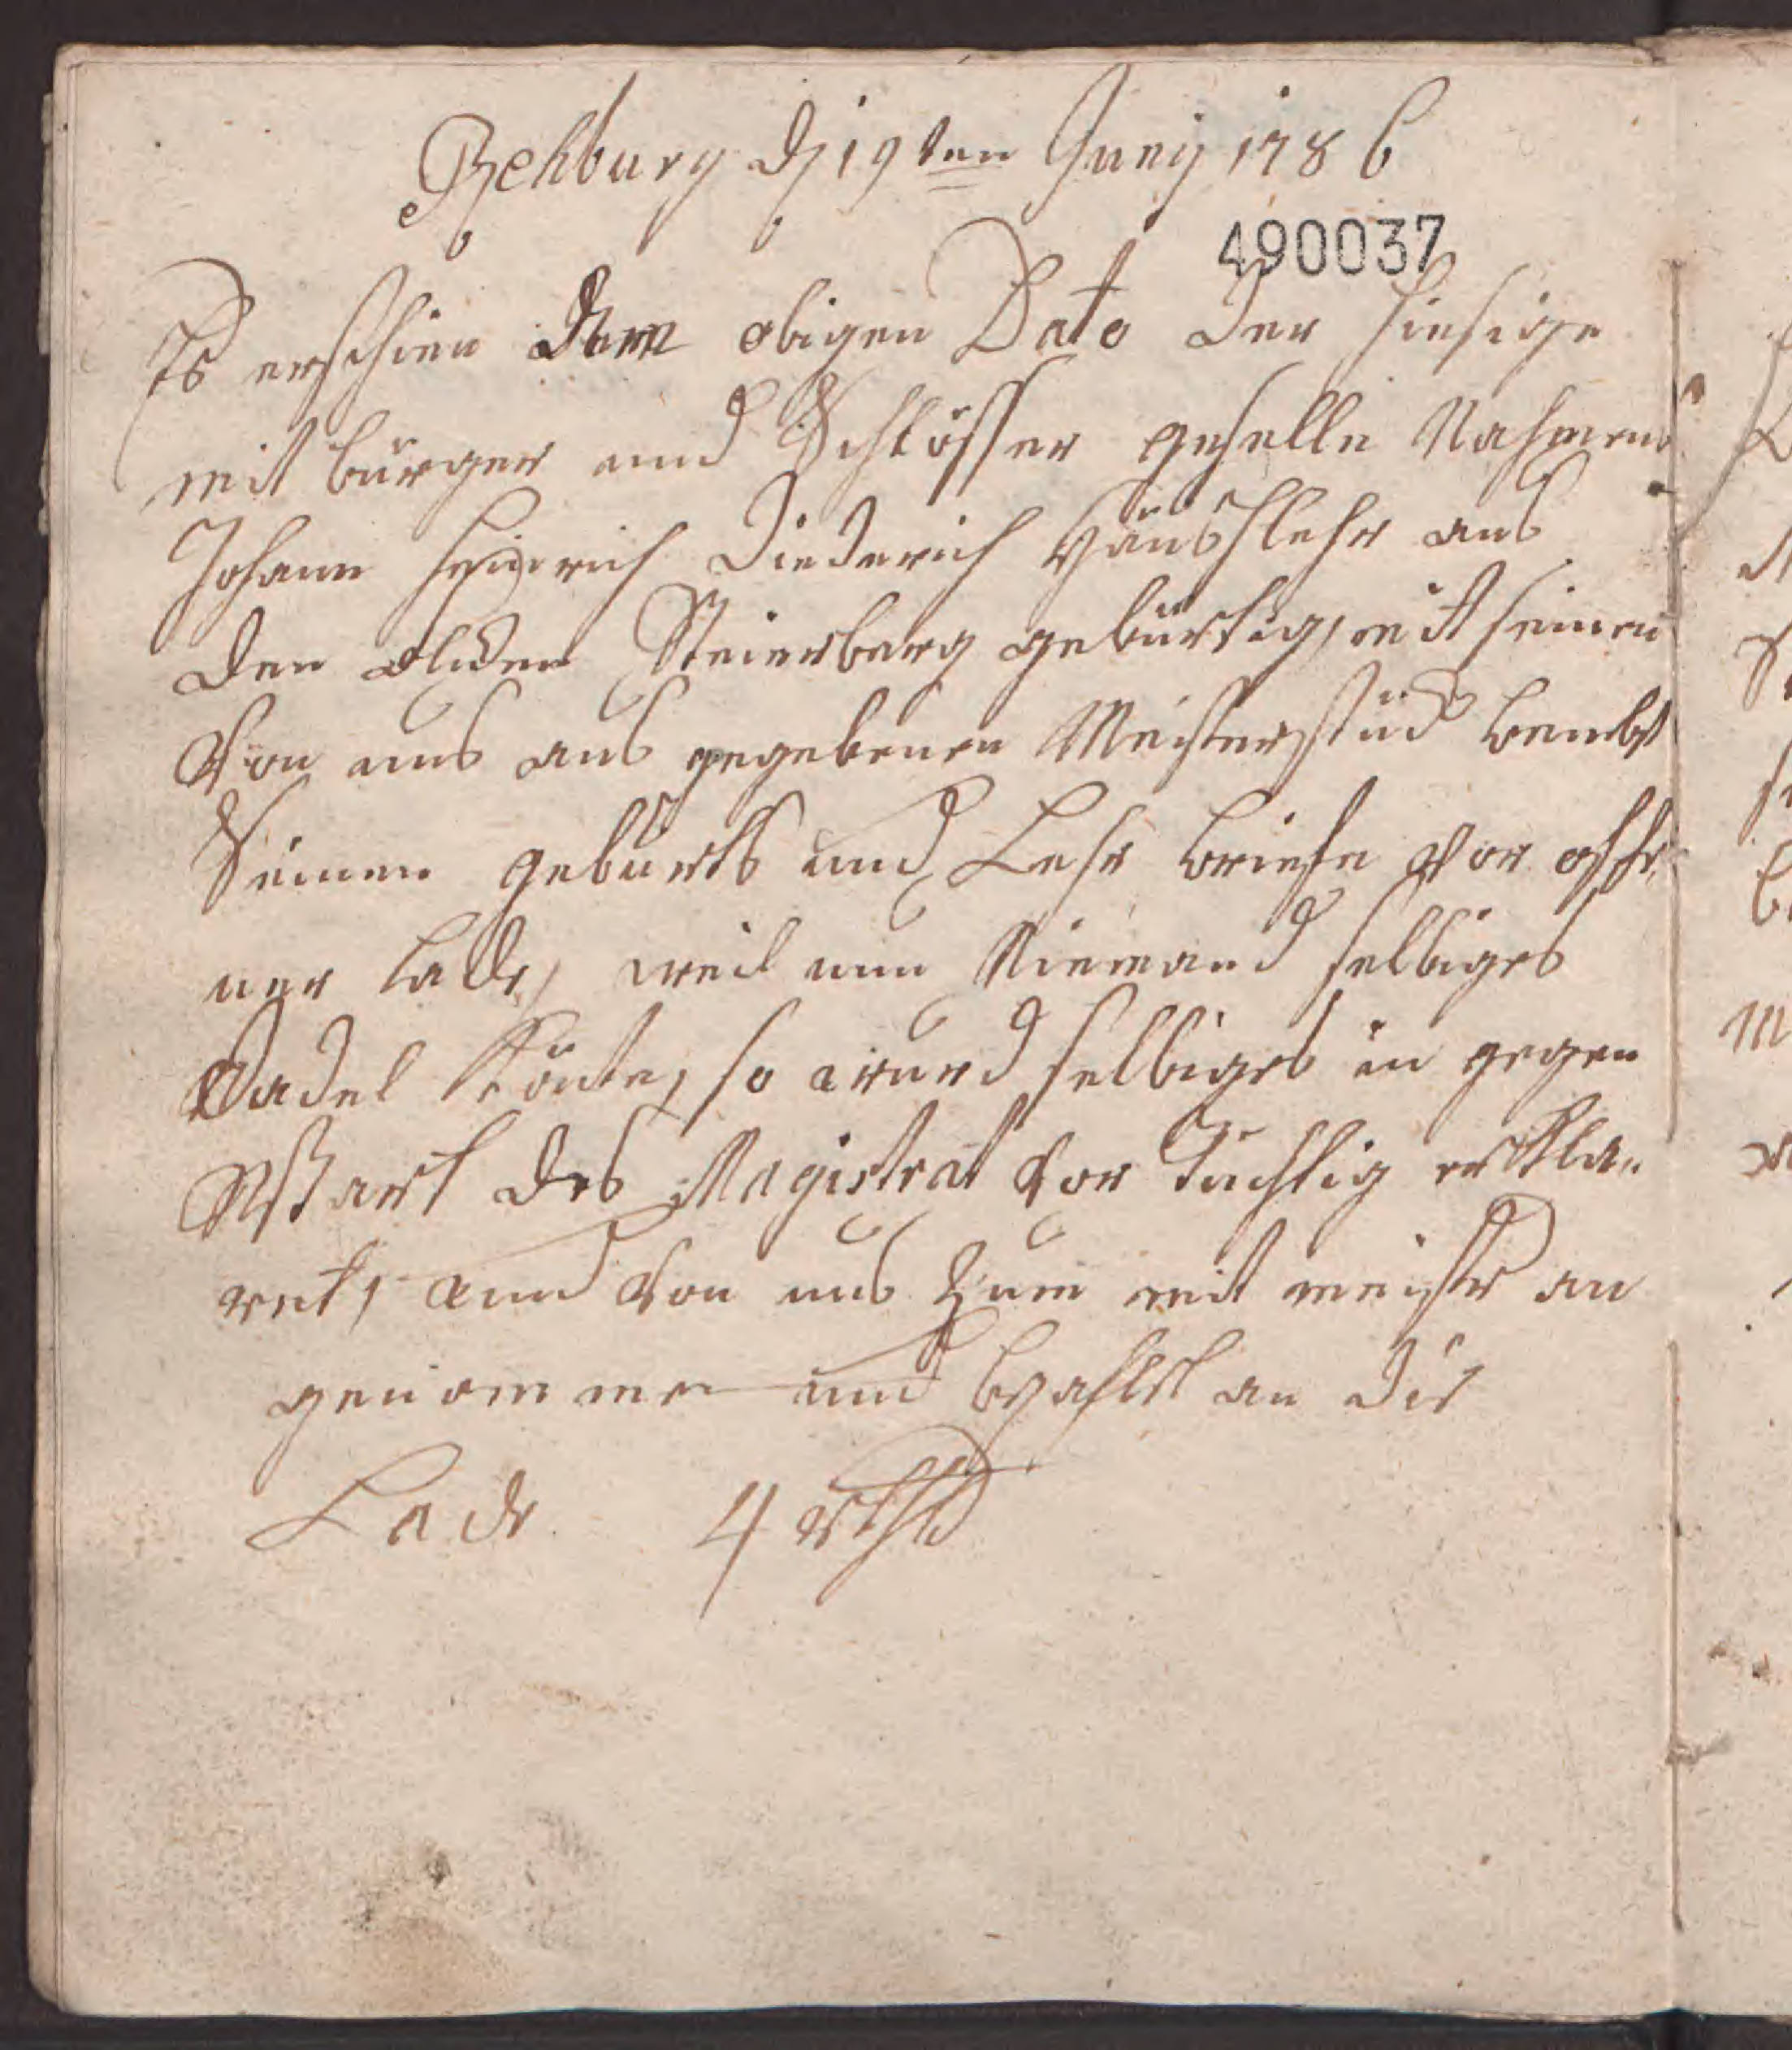 Rehburg d 19ten Junij 1786
490037
Es erschien dem obigen Dato der hiesige
mit bürger und Schlösser geselle Nahmens
Johann Heinrich Diederich aus
den Steierberg gebürtig, mit seinen
von uns aus gegebenen Meisterstück benebst
Seinen geburts und Lehr briefe vor offe-
ner lade, weil nun Niemand selbiges
Tadel könte, so wurd selbiges in gegen
Wart des Magistrat vor tüchtig erkla-
ret, und von uns zum mit meister an
genommen und bezahlet an die
Lade 4 rthl